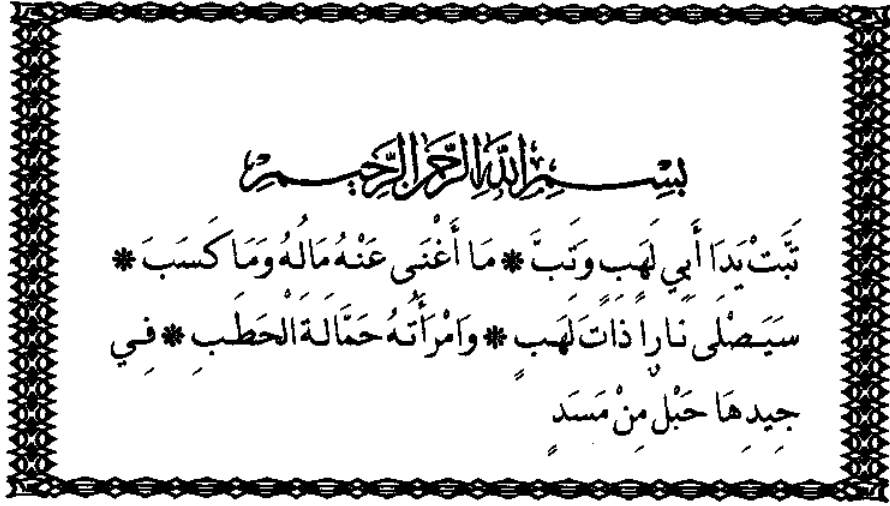 بِسْمِ اللَّهِ الرَّحْمَنِ الرَّحِيمِ
تَبَّتْ يَدَا أَبِي لَهَبٍ وَتَبَّ * مَا أَغْنَى عَنْهُ مَالُهُ وَمَا كَسَبَ *
سَيَصْلَى نَارًا ذَاتَ لَهَبٍ * وَامْرَأَتُهُ حَمَّالَةَ الْحَطَبِ * فِي
جِيدِهَا حَبْلٌ مِنْ مَسَدٍ